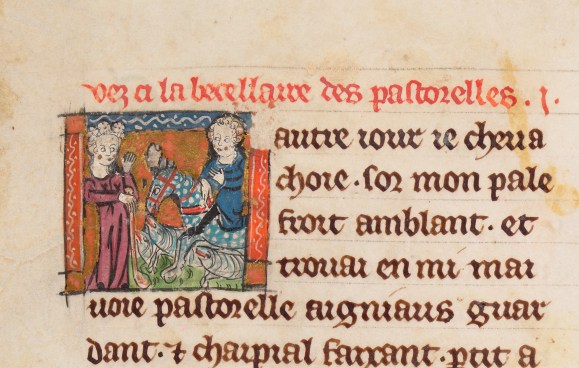 vez ci la becellarre des pastorelles . j .
autre iour ie cheua
choie . sor mon pale
froit amblant . et
trouai en mi mai
uoie pastorelle aigniaus guar
dant . ⁊ chaipial faixant . ptit a